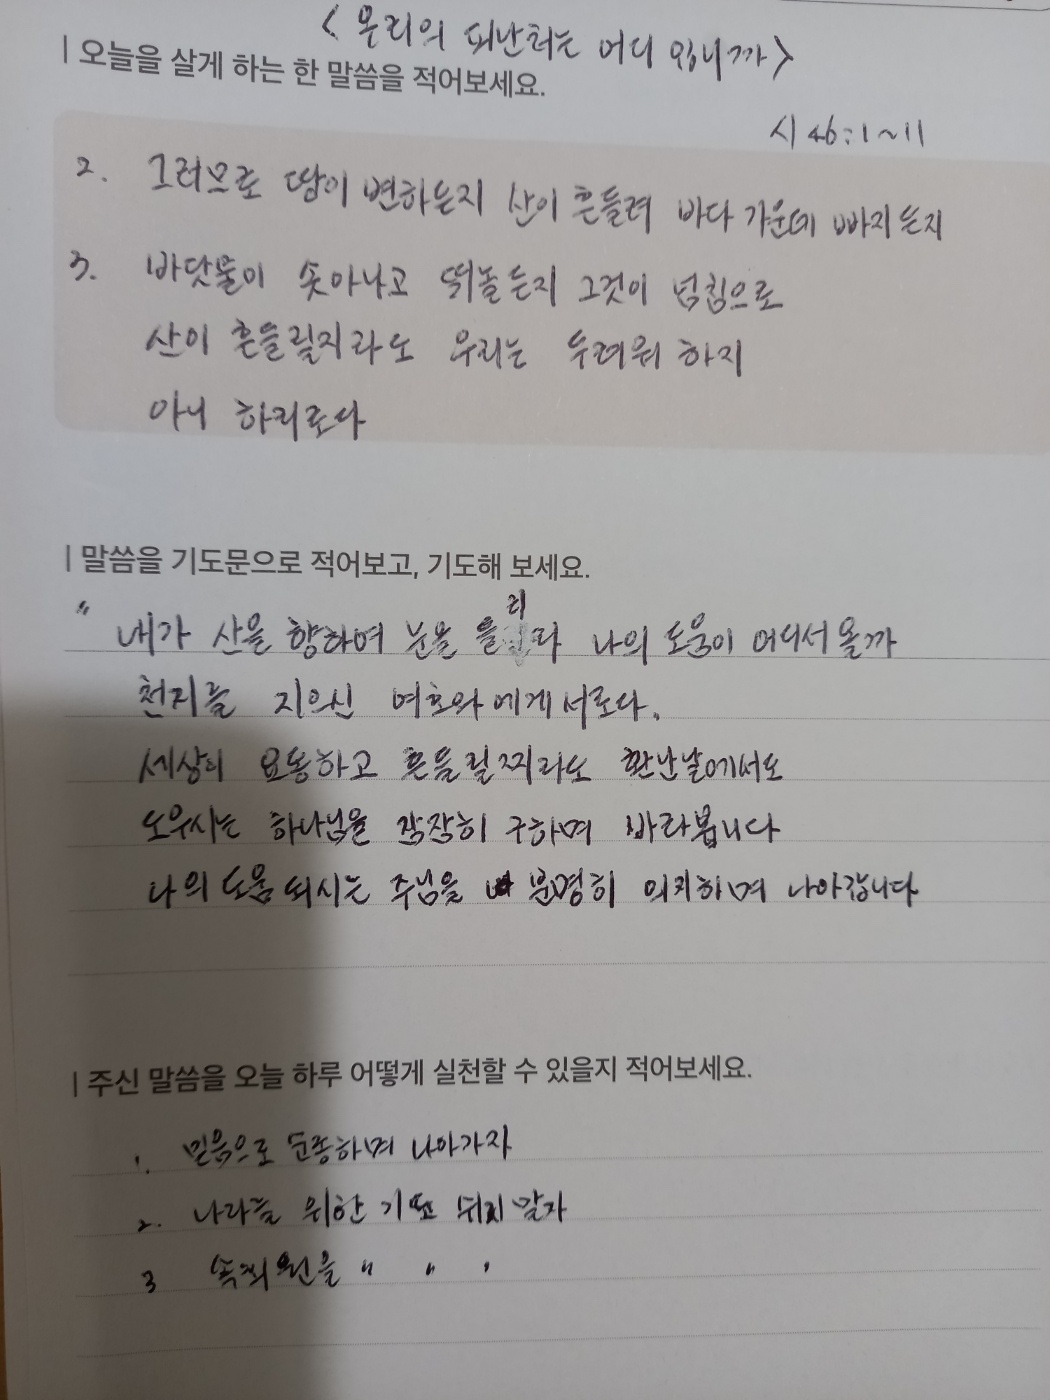 <우리의 피난처는 어디 입니까>
| 오늘을 살게 하는 한 말씀을 적어보세요.
시 46:1~11
2. 그러므로 땅이 변하든지 산이 흔들려 바다 가운데 빠지든지
3. 바닷물이 솟아나고 뛰놀든지 그것이 넘침으로
산이 흔들릴지라도 우리는 두려워 하지
아니 하리로다
| 말씀을 기도문으로 적어보고, 기도해 보세요.
" 내가 산을 향하여 눈을 들리라 나의 도움이 어디서 올까
천지를 지으신 여호와 에게서로다.
세상이 요동하고 흔들릴찌라도 환난날에서도
도우시는 하나님을 잠잠히 구하며 바라봅니다
나의 도움 되시는 주님을 분명히 의지하며 나아갑니다
| 주신 말씀을 오늘 하루 어떻게 실천할 수 있을지 적어보세요.
1. 믿음으로 순종하며 나아가자
2. 나라를 위한 기도 쉬지 말자
3 속회원을 " " "